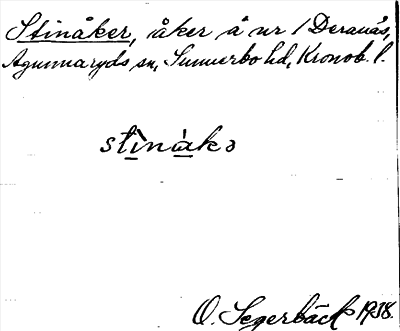 Stinåker, åker å nr 1 Deranäs,
Agunnaryds sn, Sunnerbo hd, Kronob. l.
stìnàkə
O. Segerbäck 1938.